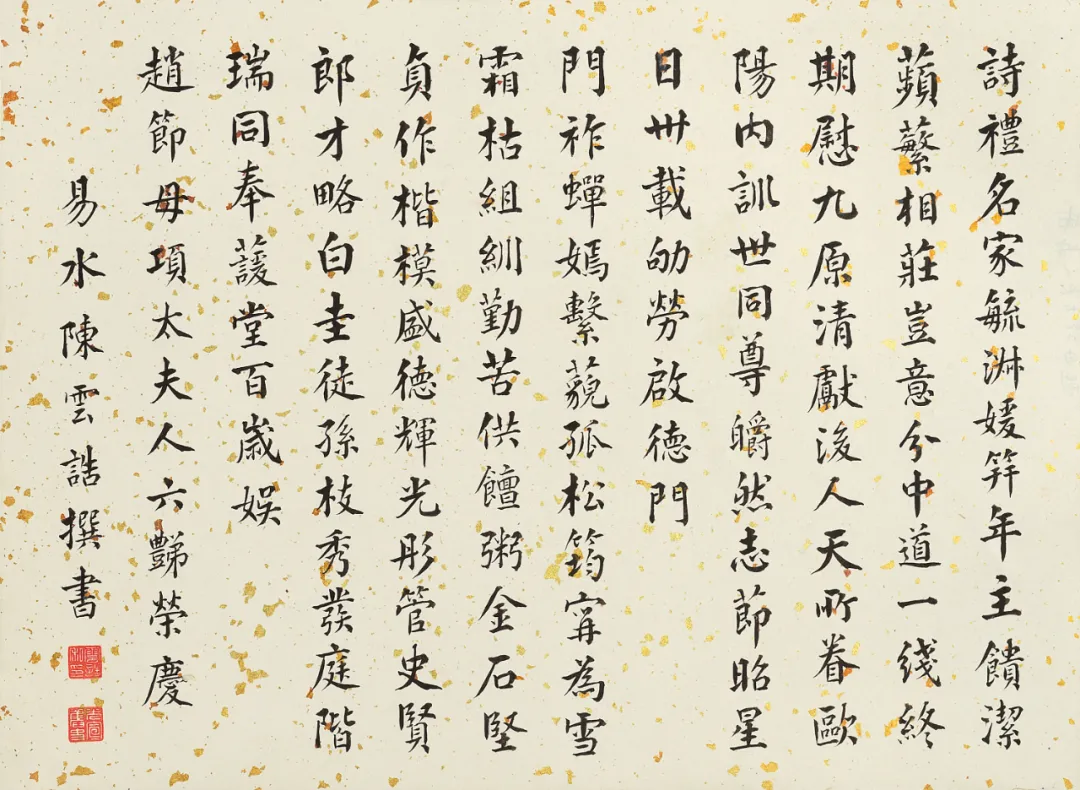 詩禮名家毓淋媛笄年主饋潔
蘋蘩相莊豈意分中道一綫終
期慰九原清獻後人天所眷歐
陽内訓世同尊皭然志節昭星
日卅載劬勞啟德門
門祚蟬嫣繫藐孤松筠甯為雪
霜枯組紃勤苦供饘粥金石堅
貞作楷模盛德輝光彤管史賢
郎才略白圭徒孫枝秀發庭階
瑞同奉萲堂百歲娛
趙節母項太夫人六豑榮慶
易水陳雲誥撰書